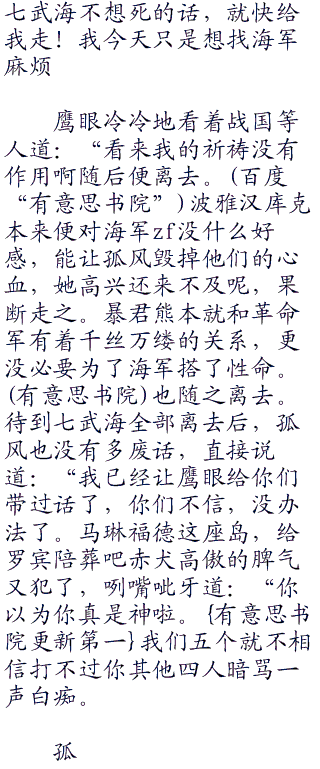 七武海不想死的话，就快给
我走！我今天只是想找海军
麻烦
鹰眼冷冷地看着战国等
人道：“看来我的祈祷没有
作用啊随后便离去。(百度
“有意思书院”)波雅汉库克
本来便对海军zf没什么好
感，能让孤风毁掉他们的心
血，她高兴还来不及呢，果
断走之。暴君熊本就和革命
军有着千丝万缕的关系，更
没必要为了海军搭了性命。
(有意思书院)也随之离去。
待到七武海全部离去后，孤
风也没有多废话，直接说
道：“我已经让鹰眼给你们
带过话了，你们不信，没办
法了。马琳福德这座岛，给
罗宾陪葬吧赤犬高傲的脾气
又犯了，咧嘴呲牙道：“你
以为你真是神啦。{有意思书
院更新第一}我们五个就不相
信打不过你其他四人暗骂一
声白痴。
孤